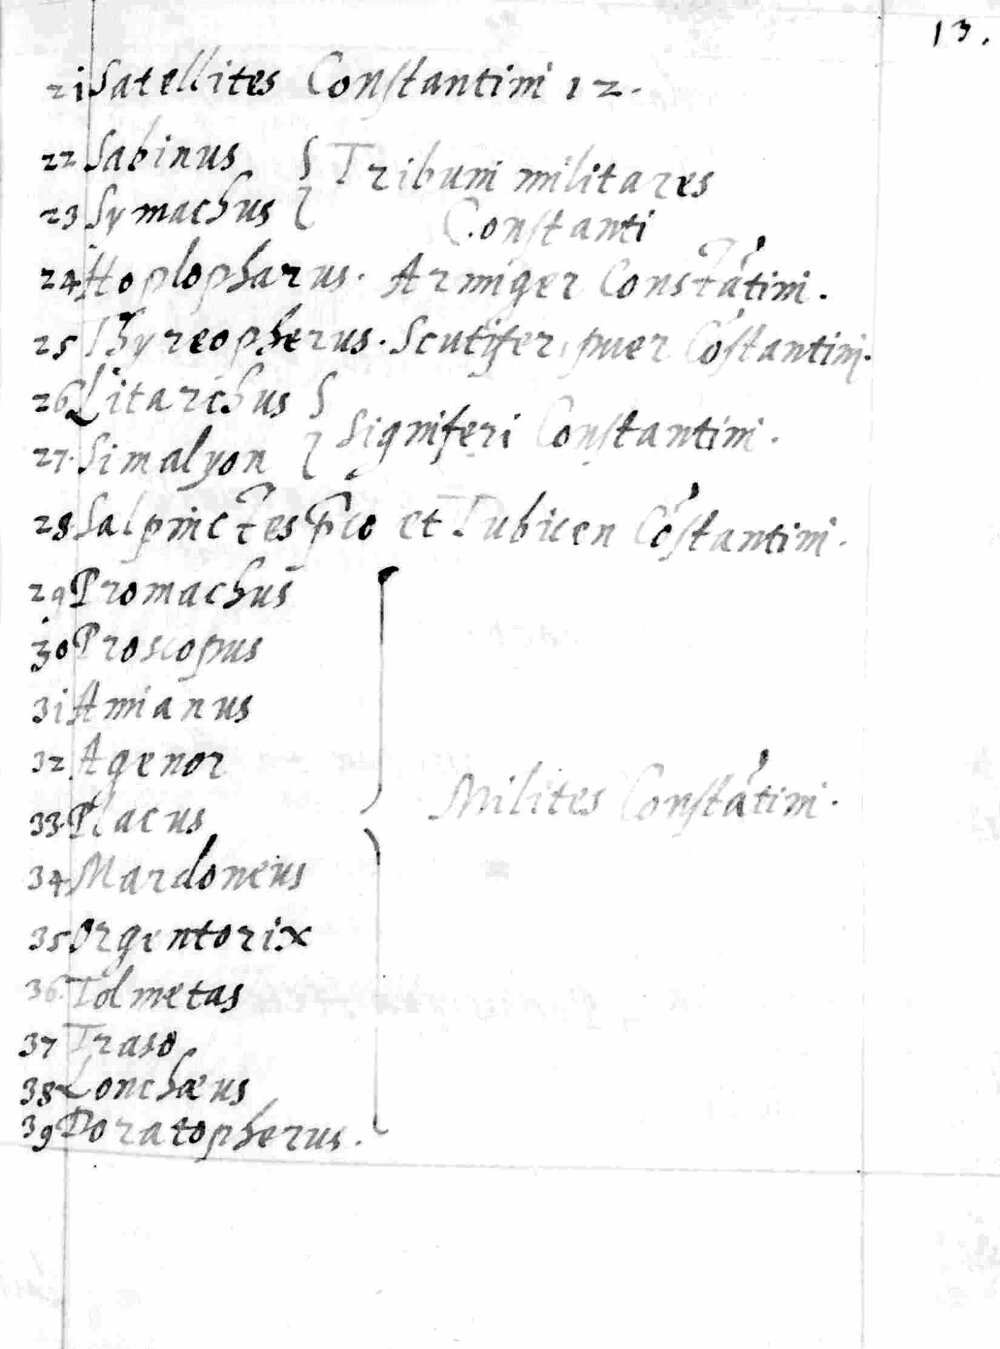 13.
21 Satellites Constantini 12.
22 Sabinus } Tribuni militares
23 Symachus } Constanti
24 Hoplopharus. Armiger Constātini.
25 Thyreopherus. Scutifer, puer Cōstantini.
26 Litarchus }
27. Simalyon } Signiferi Constantini.
28 Salpinctes et Tubicen Cōstantini.
29 Promachus
30 Proscopus
31 Amianus
32 Agenor
33. Placus
Milites Constātini.
34 Mardoneus
35 Orgentorix
36. Tolmetas
37 Traso
38 Lonchæus
39 Doratopherus.